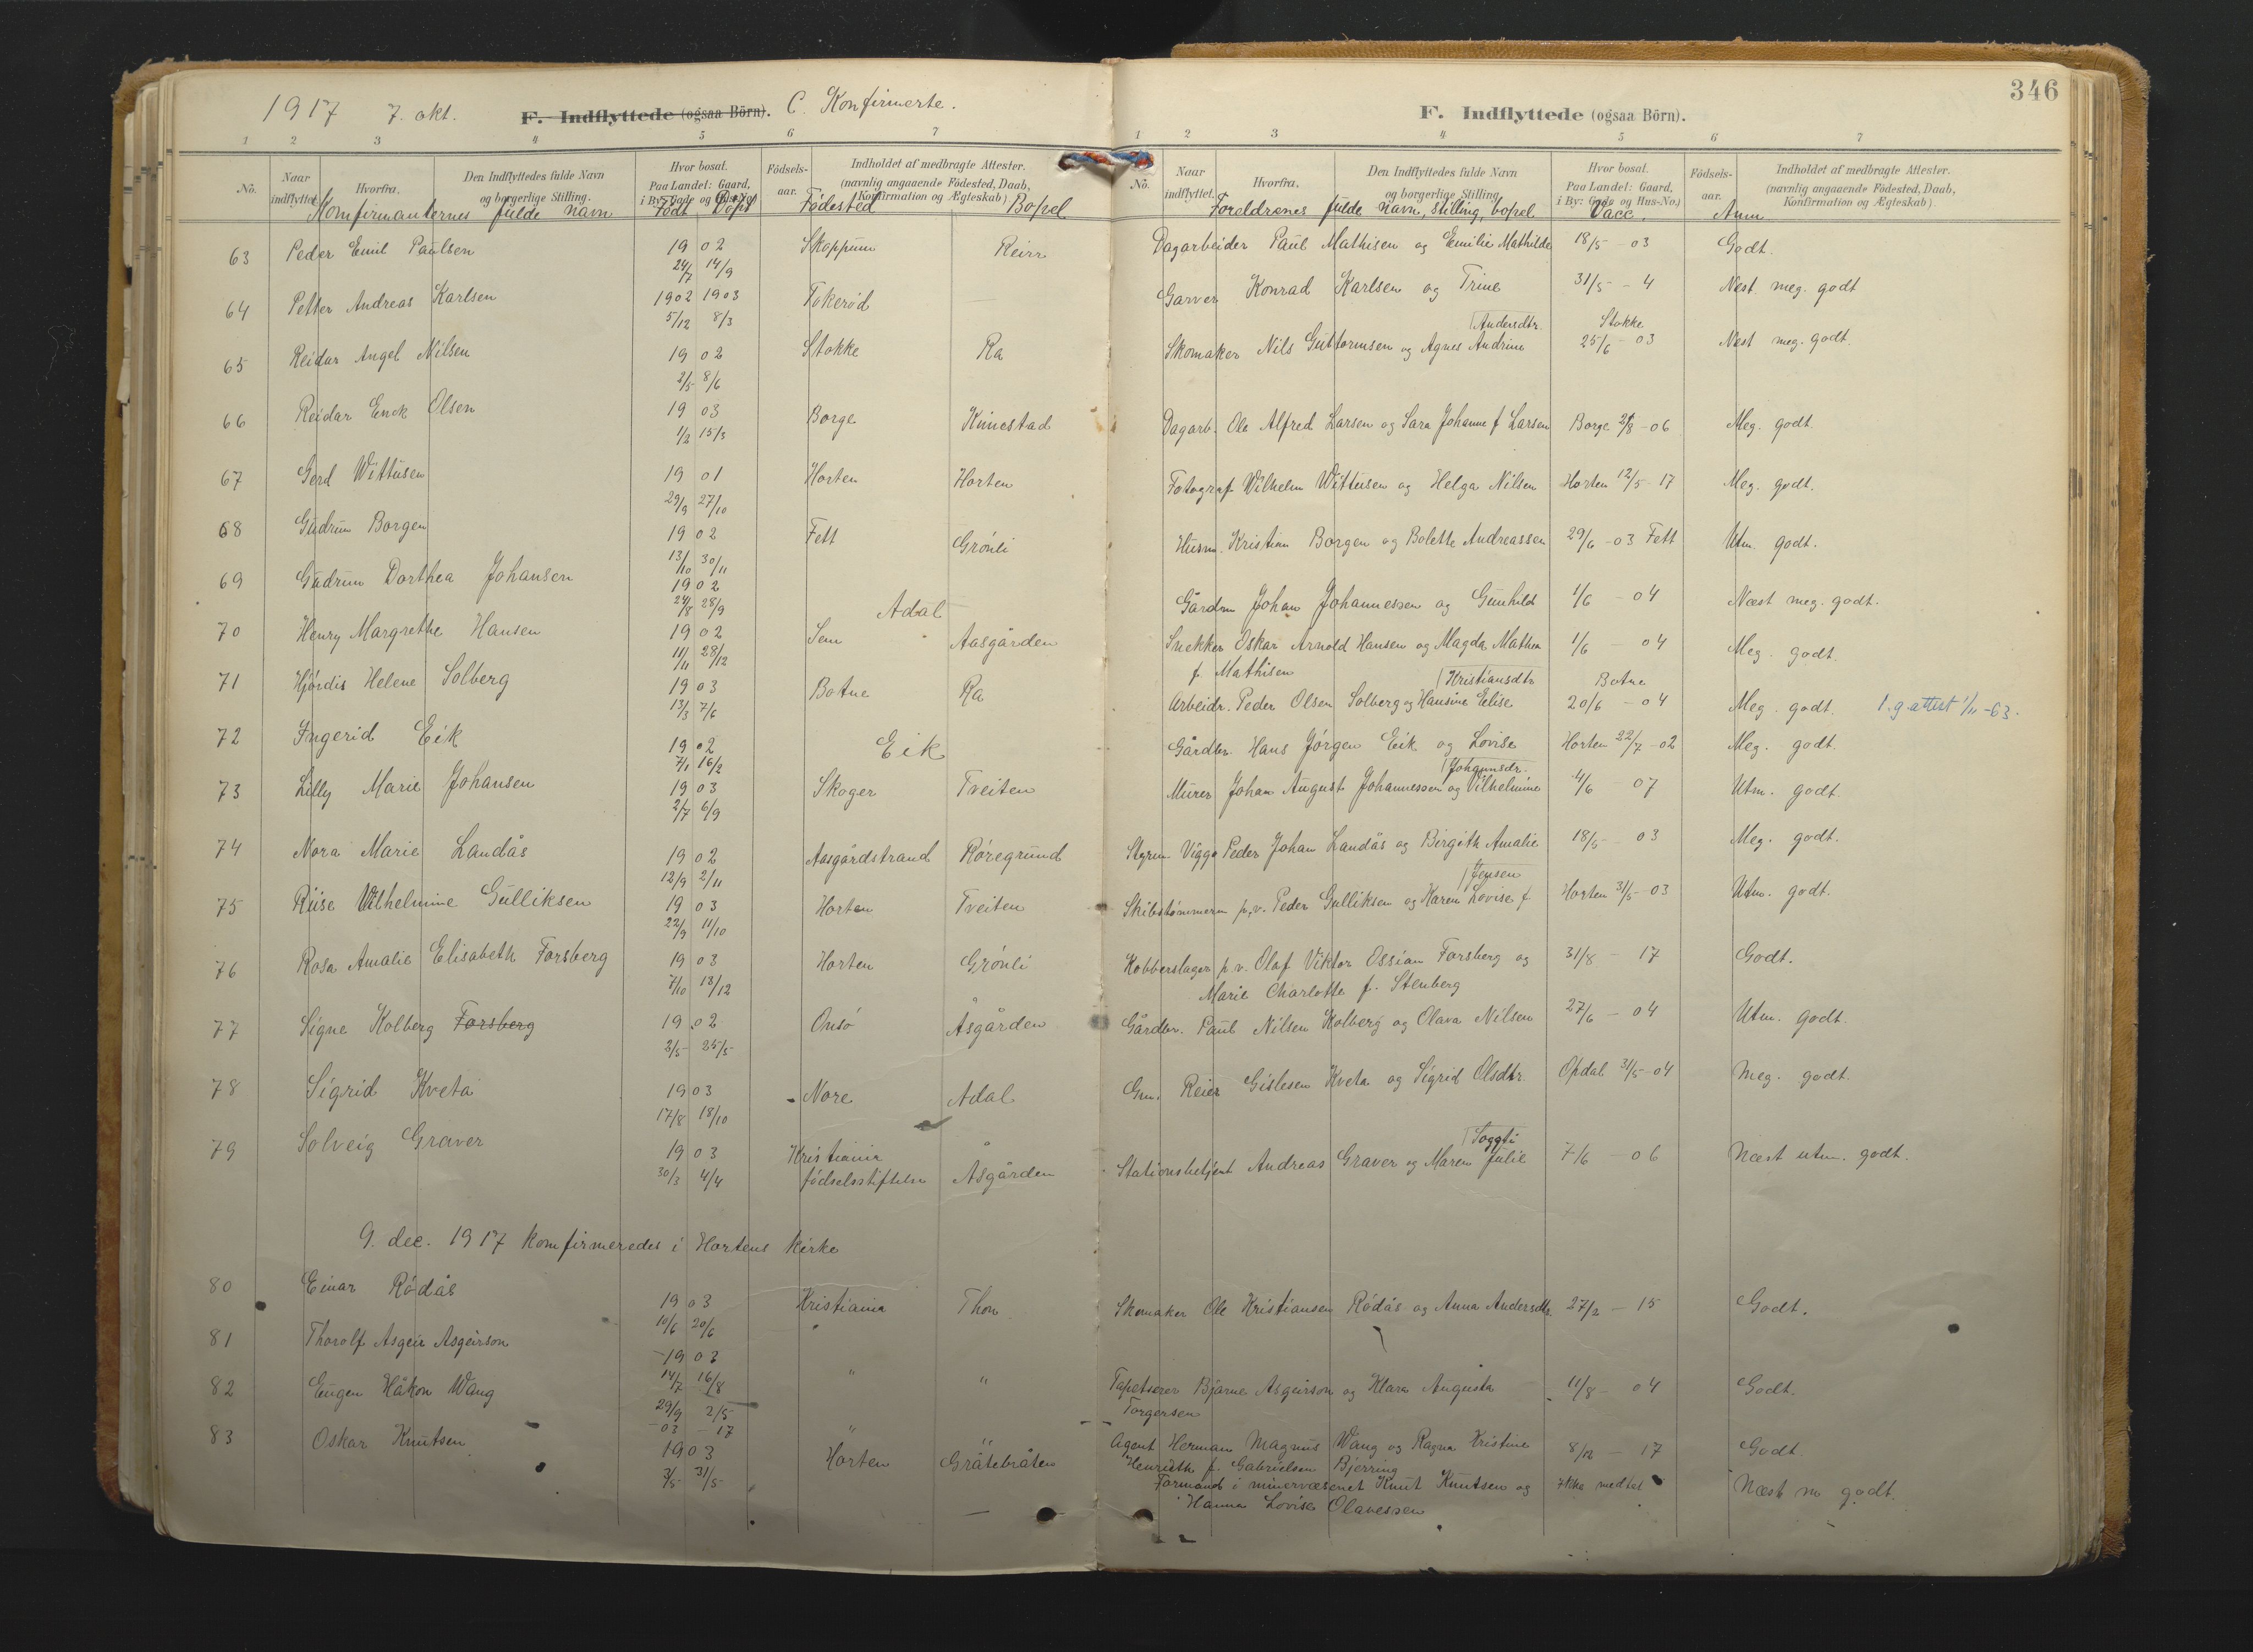 346
1917 7. okt. F. Indflyttede (ogsaa Börn). C. Konfirmerte.
F. Indflyttede (ogsaa Börn).
1 2 3 4 5 6 7
1 2 3 4 5 6 7
No. Naar indflyttet. Hvorfra. Den Indflyttedes fulde Navn og borgerlige Stilling. Hvor bosat. Paa Landet: Gaard, i By: Gade og Hus-No. Födsels-aar. Indholdet af medbragte Attester. (navnlig angaaende Födested, Daab, Konfirmation og Ægteskab)
No. Naar indflyttet. Hvorfra. Den Indflyttedes fulde Navn og borgerlige Stilling. Hvor bosat. Paa Landet: Gaard, i By: Gade og Hus-No. Födsels-aar. Indholdet af medbragte Attester. (navnlig angaaende Födested, Daab, Konfirmation og Ægteskab).
Konfirmanternes fulde navn Födt Döpt Födested Bopel Foreldrenes fulde navn, stilling, bopel Vacc. Anm
63 Peder Emil Paulsen 1902 24/7 14/9 Skoppum Reirr Dagarbeider Paul Mathisen og Emilie Mathilde 18/5 - 03 Godt.
64 Petter Andreas Karlsen 1902 1903 5/12 8/3 Tokerød Garver Konrad Karlsen og Trine 31/5 - 4 Nest meg. godt
65 Reidar Angel Nilsen 1902 2/5 8/6 Stokke Ra Skomaker Nils Guttormsen og Agnes Andrine Andersdtr. Stokke 25/6 - 03 Nest meg. godt.
66 Reidar Enok Olsen 1903 1/2 15/3 Borge Knnestad Dagarb. Ole Alfred Larsen og Sara Johanne f Larsen Borge 2/8 - 06 Meg. godt.
67 Gerd Wittusen 1901 29/9 27/10 Horten Horten Fotograf Wilhelm Wittusen og Helga Nilsen Horten 12/5 - 17 Meg. godt.
68 Gudrun Borgen 1902 13/10 30/11 Fett Grönli Husm. Kristian Borgen og Bolette Andreassen 29/6 - 03 Fett Utm. godt.
69 Gudrun Dorthea Johansen 1902 24/8 28/9 Adal Gårdm Johan Johannessen og Gunhild 1/6 - 04 Næst meg. godt.
70 Henry Margrethe Hansen 1902 11/11 28/12 Sem Aasgården Snekker Oskar Arnold Hansen og Magda Mathea f. Mathisen 1/6 - 04 Meg. godt.
71 Hjördis Helene Solberg 1903 13/3 7/6 Botne Ra Arbeidr. Peder Olsen Solberg og Hansine Elise Kristiansdtr Botne 20/6 - 04 Meg. godt. 1. g. attest 1/11 -63.
72 Ingerid Eik 1902 7/1 16/2 Eik Gårdbr. Hans Jörgen Eik og Lovise Horten 22/7 - 02 Meg. godt.
73 Lilly Marie Johansen 1903 2/7 6/9 Skoger Tveiten Murer Johan August Johannessen og Vilhelmine Johannsdr. 4/6 07 Utm. godt.
74 Nora Marie Landås 1902 12/9 2/11 Aasgårdstrand Röregrund Styrm Viggo Peder Johan Landås og Birgith Amalie 18/5 - 03 Meg. godt.
75 Riise Vilhelmine Gulliksen 1903 22/9 11/10 Horten Tveiten Skibstömmerm p.v. Peder Gulliksen og Karen Lovise f Jensen Horten 31/5 - 03 Utm. godt.
76 Rosa Amalie Elisabeth Forsberg 1903 7/10 13/12 Horten Grönli Kobberslager p.v. Olaf Viktor Ossian Forsberg og Marie Charlotte f. Stenberg 31/8 - 17 Godt.
77 Signe Kolberg Forsberg 1902 2/5 25/5 Onsö Åsgården Gårdbr. Paul Nilsen Kolberg og Olava Nilsen 27/6 - 04 Utm. godt.
78 Sigrid Kveta 1903 17/8 18/10 Nore Adal Gm. Reier Gislesen Kveta og Sigrid Olsdtr. Opdal 31/5 - 04 Meg. godt.
79 Solveig Graver 1903 30/3 4/4 Kristiania födselsstiftelse Åsgården Stationsbetjent Andreas Graver og Maren Julie 7/6 - 06 Næst utm. godt.
9. dec. 1917 konfirmeredes i Hortens kirke
80 Einar Rödås 1903 10/6 20/6 Kristiania Thon Skomaker Ole Kristiansen Rödås og Anna Andersdtr 27/2 - 15 Godt.
81 Thorolf Asgeir Asgeirson 1903 14/7 16/8 " " Tapetserer Bjarne Asgeirson og Klara Augusta Torgersen 11/8 - 04 Godt.
82 Eugen Håkon Wang 29/9 - 03 2/5 - 17 " " Agent Herman Magnus Wang og Ragna Kristine Henriette f. Gabrielsen Bjerring 8/12 - 17 Godt
83 Oskar Knutsen 1903 3/5 31/5 Horten Gråtebråten Formand i minervæsenet Knut Knutsen og Hanna Lovise Olavessen Ikke medtat Næst m godt.